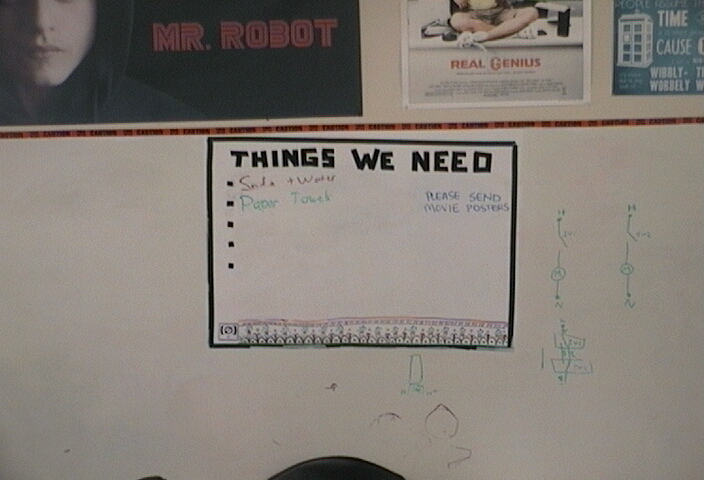 MR. ROBOT
REAL GENIUS
PEOPLE ASSUME
TIME
CAUSE
WIBBLY-
WOBBLY
CAUTION CAUTION CAUTION CAUTION CAUTION CAUTION
THINGS WE NEED
Soda + Water
Paper Towels
PLEASE SEND
MOVIE POSTERS
M
M
N
N